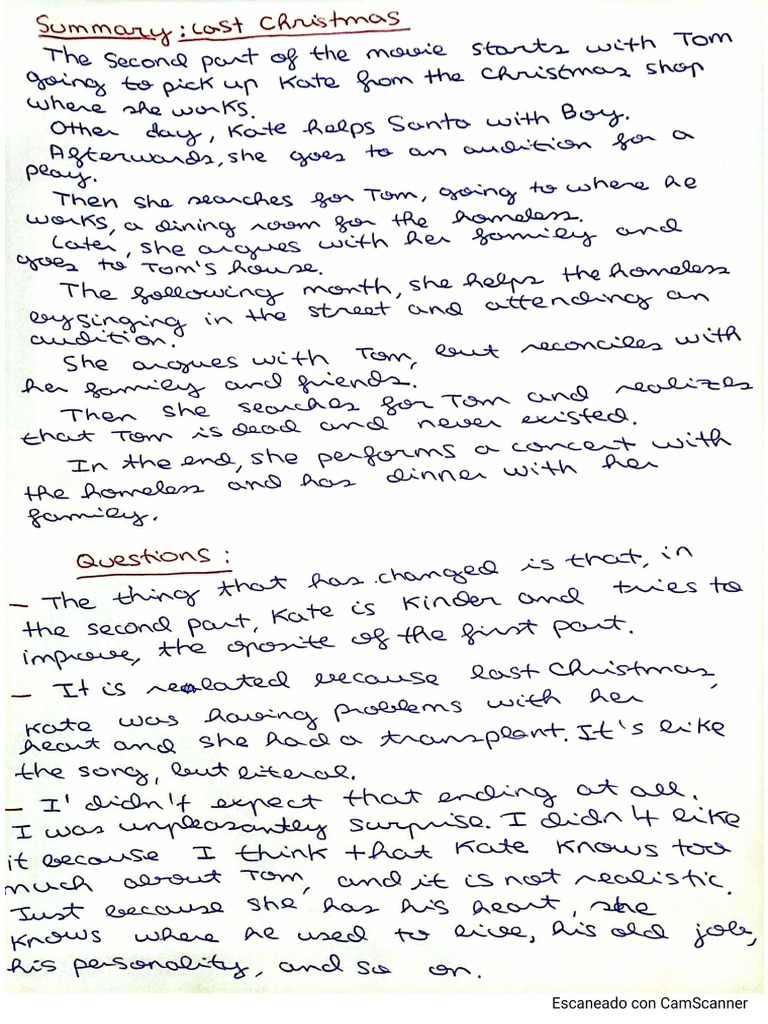 Summary: Last Christmas
The second part of the movie starts with Tom
going to pick up Kate from the Christmas shop
where she works.
Other day, Kate helps Santa with Boy.
Afterwards, she goes to an audition for a
play.
Then she searches for Tom, going to where he
works, a dining room for the homeless.
Later, she argues with her family and
goes to Tom's house.
The following month, she helps the homeless
by singing in the street and attending an
audition.
She argues with Tom, but reconciles with
her family and friends.
Then she searches for Tom and realizes
that Tom is dead and never existed.
In the end, she performs a concert with
the homeless and has dinner with her
family.
Questions:
- The thing that has changed is that, in
the second part, Kate is kinder and tries to
improve, the oposite of the first part.
- It is related because last Christmas,
Kate was having problems with her
heart and she had a transplant. It's like
the song, but literal.
- I' didn't expect that ending at all.
I was unpleasantly surprise. I didn't like
it because I think that Kate knows too
much about Tom, and it is not realistic.
Just because she has his heart, she
knows where he used to live, his old job,
his personality, and so on.
Escaneado con CamScanner